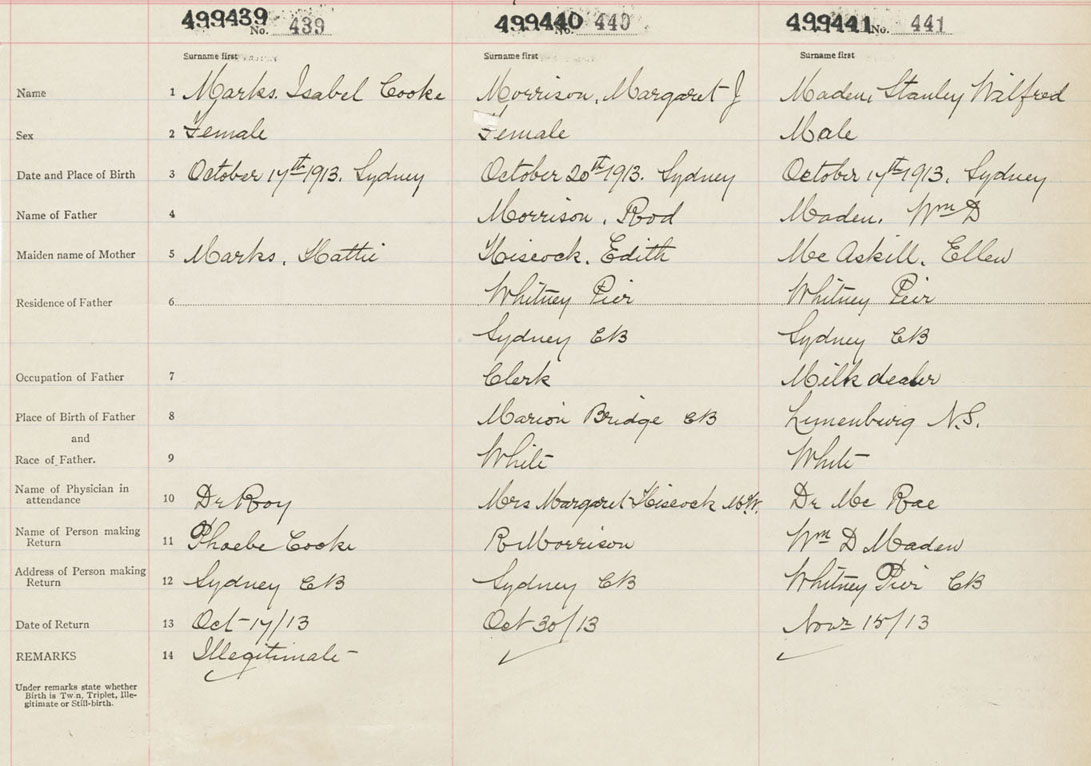 499439 No. 439 499440 No. 440 499441 No. 441
Surname first Surname first Surname first
Name 1 Marks, Isabel Cooke Morrison, Margaret J Maden, Stanley Wilfred
Sex 2 Female Female Male
Date and Place of Birth 3 October 17th 1913. Sydney October 20th 1913. Sydney October 17th 1913. Sydney
Name of Father 4 Morrison, Rod Maden, Wm D
Maiden name of Mother 5 Marks, Hattie Hiscock, Edith Mc Askill, Ellen
Residence of Father 6 Whitney Pier Whitney Peir
Sydney CB Sydney CB
Occupation of Father 7 Clerk Milk dealer
Place of Birth of Father 8 Marion Bridge CB Lunenburg N.S.
and
Race of Father. 9 White White
Name of Physician in
attendance 10 Dr Roy Mrs Margaret Hiscock M.W. Dr Mc Rae
Name of Person making
Return 11 Phoebe Cooke R Morrison Wm D Maden
Address of Person making
Return 12 Sydney CB Sydney CB Whitney Pier CB
Date of Return 13 Oct 17/13 Oct 30/13 Novr 15/13
REMARKS 14 Illegitimate
Under remarks state whether
Birth is Twin, Triplet, Ille-
gitimate or Still-birth.